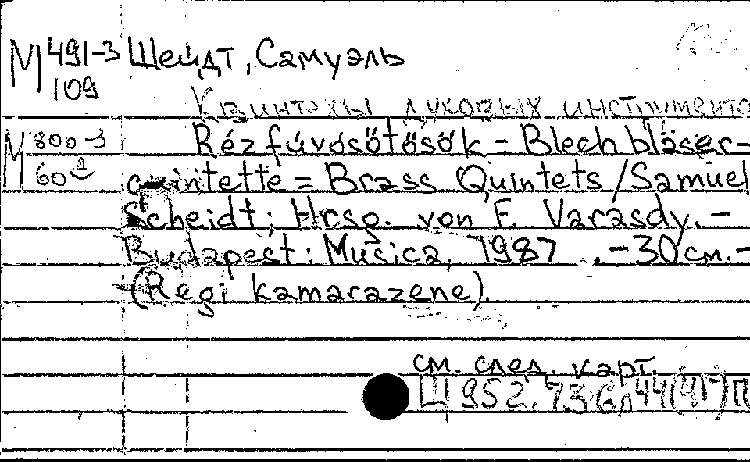 М 491-3 Шейдт, Самуэль
109
Квинтеты духовых инструменто
М 800-3 Rézfúvósötösök = Blechbläser-
60 quintette = Brass Quintets / Samuel
Scheidt; Hrsg. von F. Varasdy. -
Budapest: Musica, 1987. - 30 см. -
(Regi kamarazene).
см. след. карт.
Щ 952.736.44(4Г)П